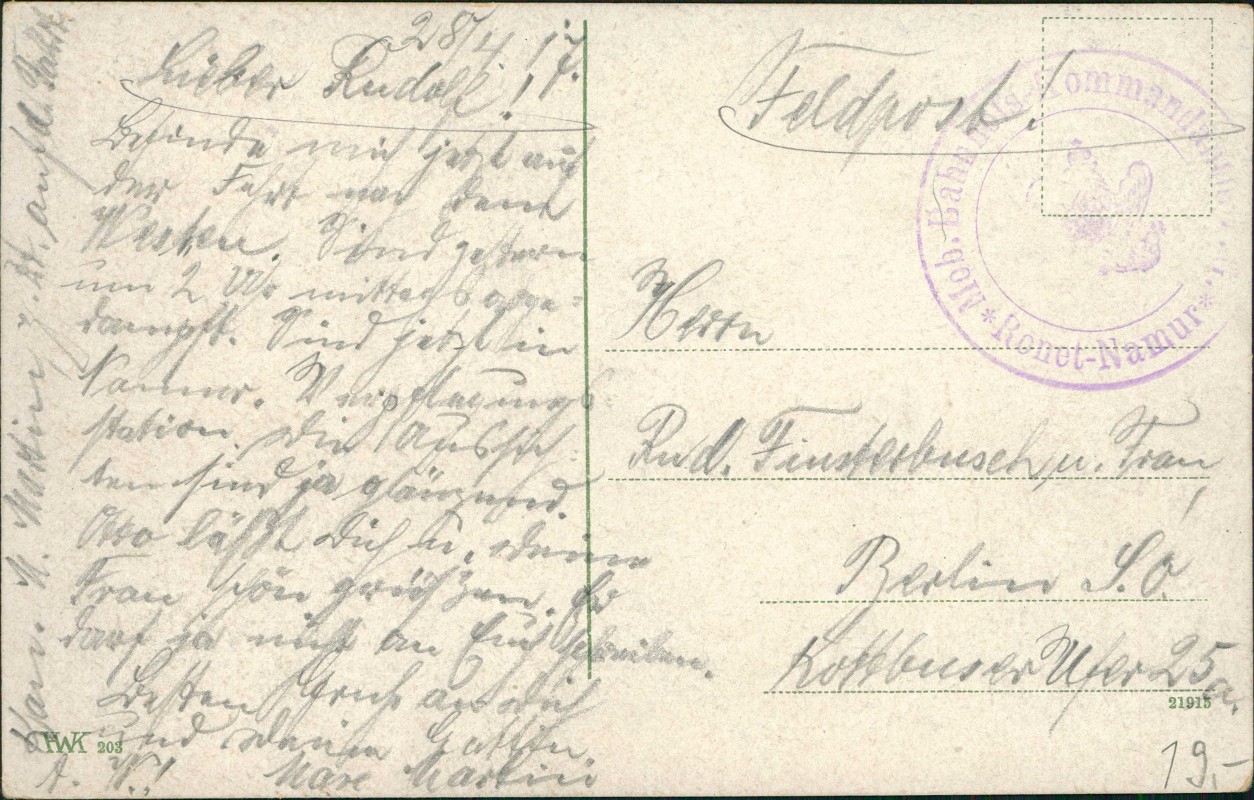 28/4 17.
Lieber Rudolf!
Befinde mich jetzt auf
der Fahrt nach dem
Westen. Sind gestern
um 2 Uhr mittags abge=
dampft. Sind jetzt in
Namur. Verpflegungs
station. Die Aussich=
ten sind ja glänzend.
Otto läßt Dich u. Deine
Frau schön grüßen. Er
darf ja nicht an Euch schreiben.
Besten Gruß an Dich
und Deine Gattin.
Max Martini
A. W.!
Martini z. Zt. auf d. Fahrt.
Feldpost!
Mob. Bahnhofs-Kommandantur
*Ronet-Namur*
Herrn
Rud. Finsterbusch u. Frau
Berlin S.O.
Kottbuser Ufer 25a.
21915
HWK 203
19.-